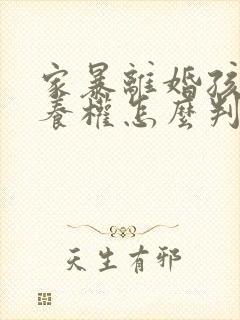 家暴離婚孩
養權怎麼判
天生有邪